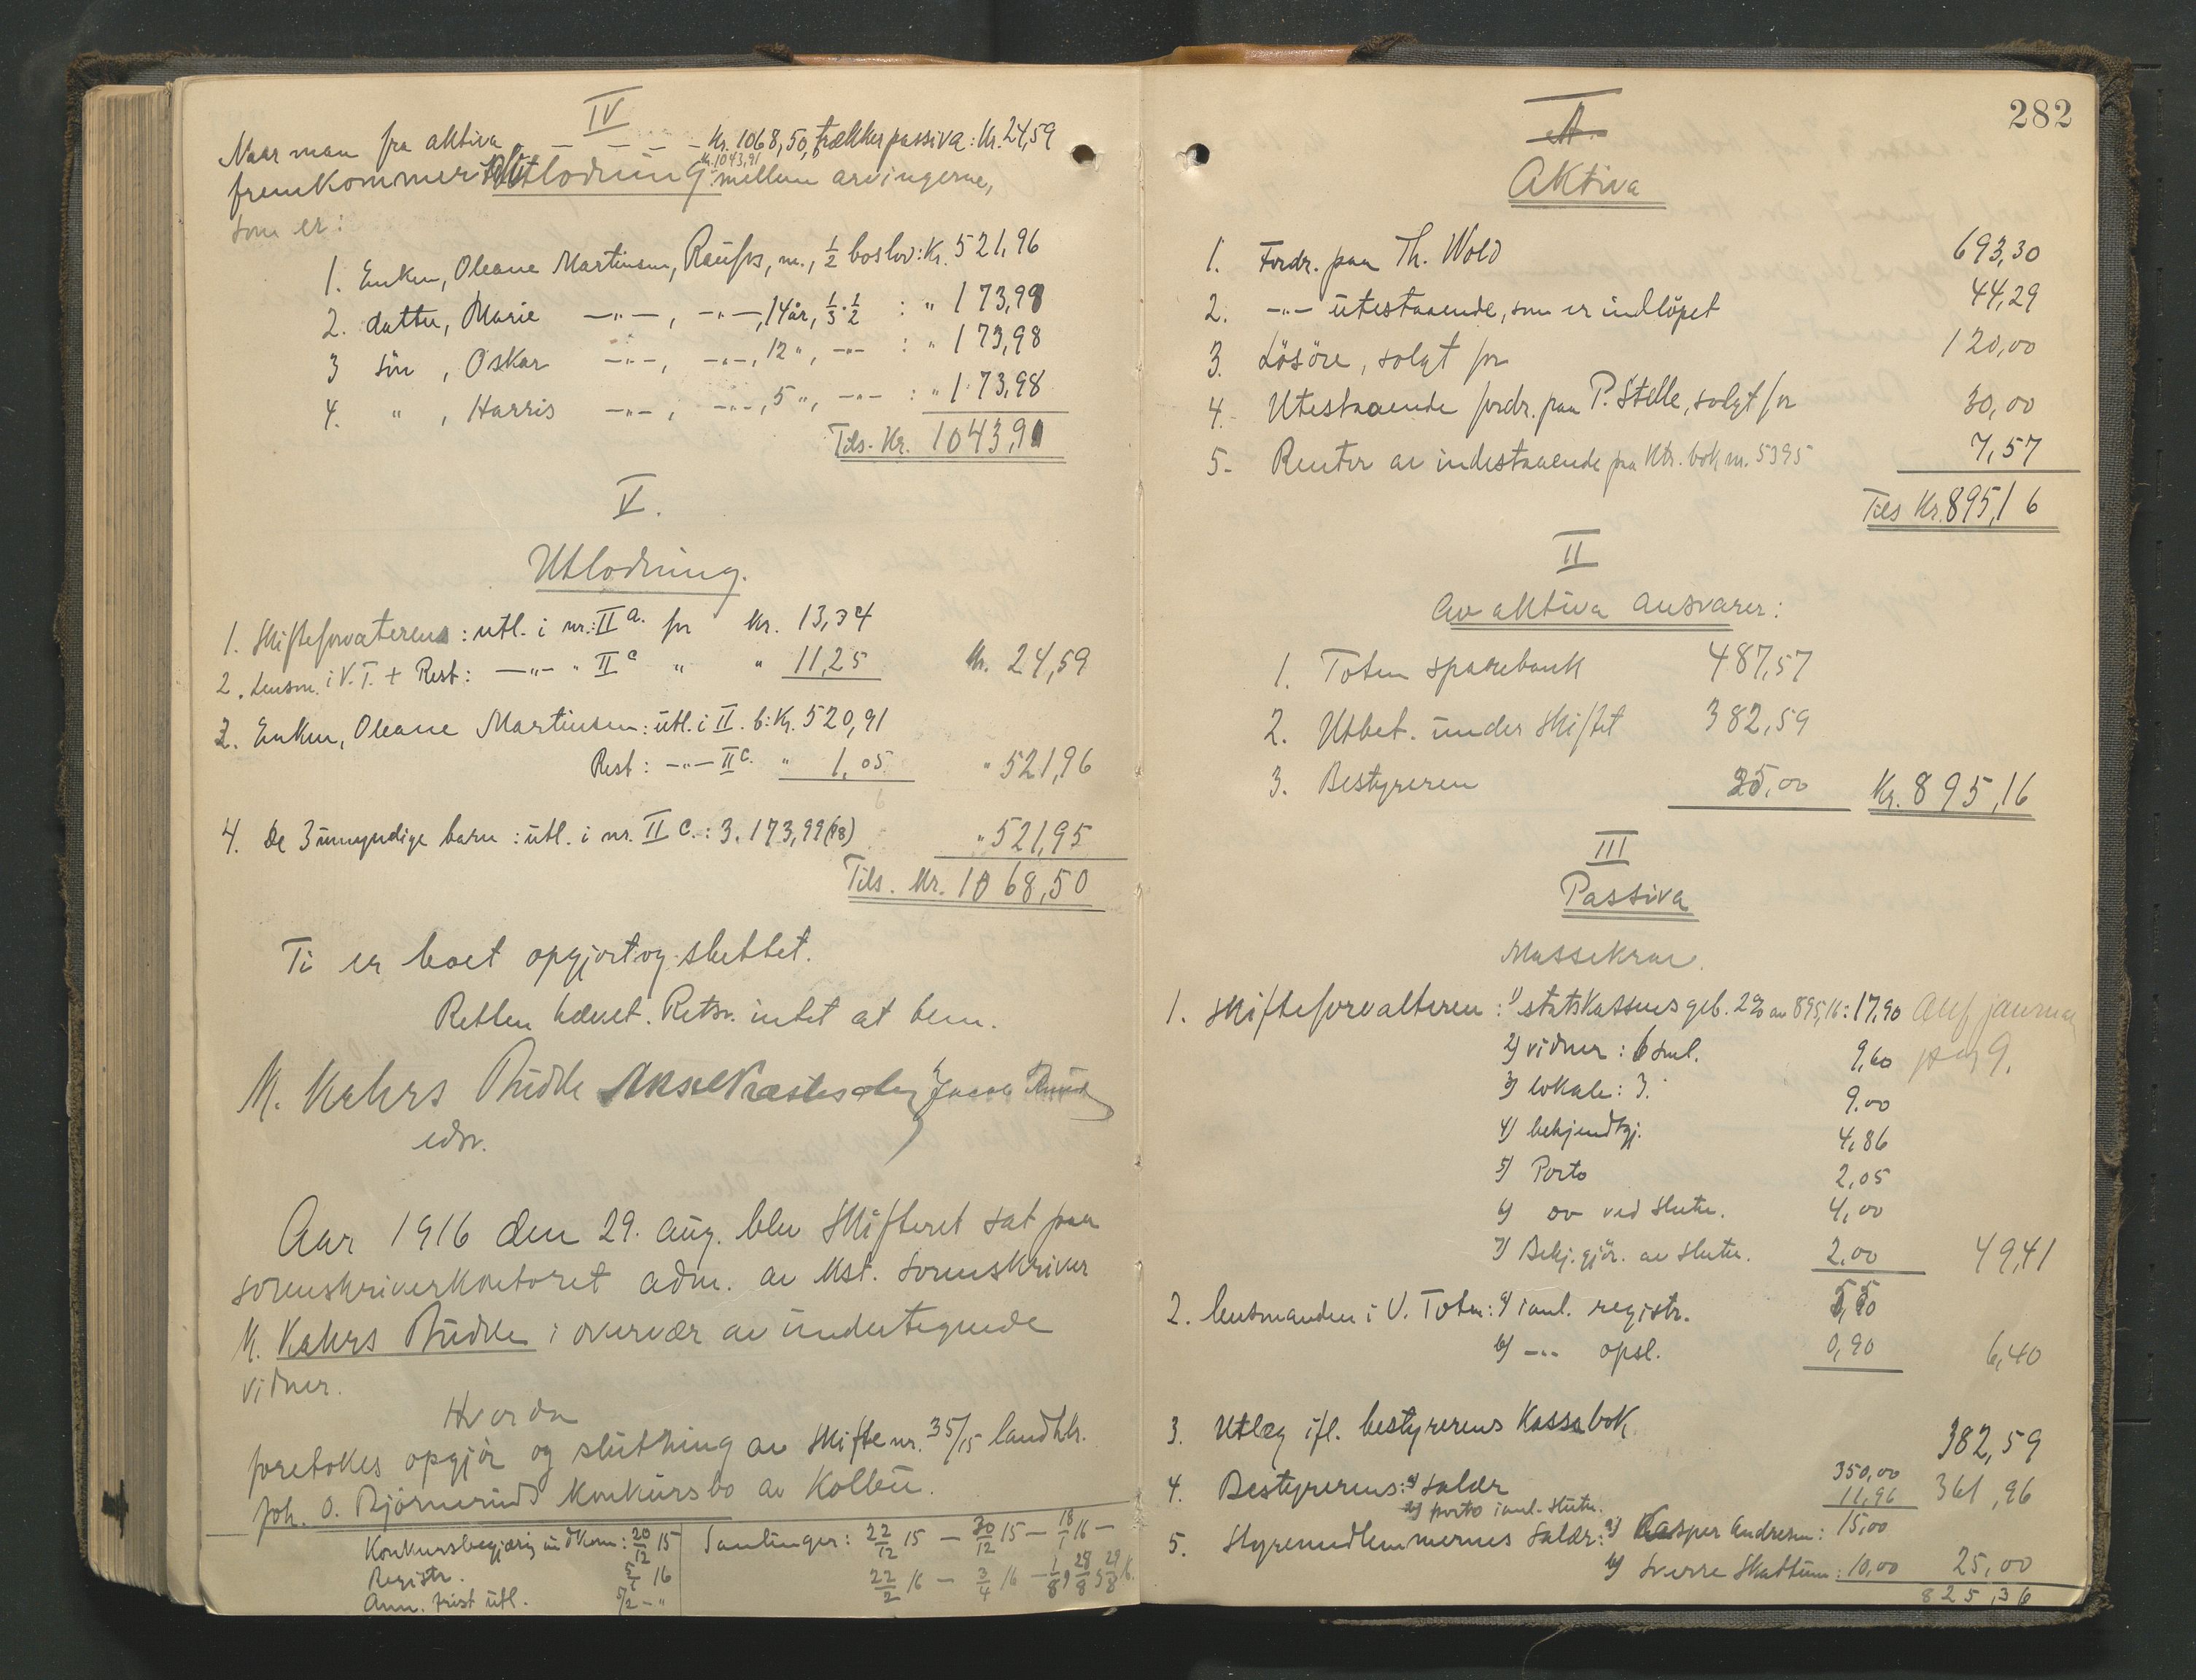 IV
Naar man fra aktiva — — — — Kr. 1068,50, trækker passiva: Kr. 24,59
fremkommer til Utlodning Kr. 1043,91 mellem arvingerne,
som er:
1. Enken, Oleane Martinsen, Raufos, m., 1/2 boslod: Kr. 521,96
2. datter, Marie —"—, —"—, 14 år, 1/3 · 1/2 : " 173,98
3 sön, Oskar —"—, —"—, 12 ", —"— : " 173,98
4. " , Harris —"—, —"—, 5 ", —"— : " 173,98
Tils. Kr. 1043,91
V.
Utlodning.
1. Skifteforvalteren: utl. i nr.: II a. for Kr. 13,34
2. Lensm. i V. T. + Rest: —"— " II c " " 11,25 Kr. 24,59
3. Enken, Oleane Martinsen: utl. i II. b: Kr. 520,91
Rest: —"— II c. " 1,05 " 521,96
4. De 3 umyndige barn: utl. i nr. II c.: 3. 173,99 (98) " 521,95
Tils. Kr. 1068,50
Ti er boet opgjort og sluttet.
Retten hævet. Retsv. intet at bem.
M. Kahrs Budde Jacob Ruud
edsv.
Aar 1916 den 29. aug. blev Skifteret sat paa
sorenskriverkontoret adm. av kst. sorenskriver
M. Kahrs Budde i overvær av undertegnede
vidner.
Hvorda
foretokes opgjör og slutning av Skifte nr. 35/15 landhlr.
Joh. O. Björnerud's Konkursbo av Kolbu.
Konkursbegjæring indkom: 20/12 15 Samlinger: 22/12 15 — 30/12 15 — 18/1 16 —
Registr. 5/1 16 22/2 16 — 3/4 16 — 1/8, 28/8, 29/8 16.
Ann. frist utl. 5/2 — "
282
I
A.
Aktiva
1. Fordr. paa Th. Wold 693,30
2. —"— utestaaende, som er indlöpet 44,29
3. Lösöre, solgt for 120,00
4. Utestaaende fordr. paa P. Stelle, solgt for 30,00
5. Renter av indestaaende paa Ktr. bok nr. 5395 7,57
Tils Kr. 895,16
II
Av aktiva ansvarer:
1. Toten sparebank 487,57
2. Utbet. under skiftet 382,59
3. Bestyreren 25,00 Kr. 895,16
III
Passiva
Massekrav.
1. Skifteforvalteren: 1) statskassens geb. 2% av 895,16: 17,90
2) vidner: 6 saml. 9,60
3) lokale: 3. 9.00
4) bekjendtgj. 4,86
5) Porto 2,05
6) ov ved slutn. 4,00
7) Bekj.gjör. av slutn. 2,00 49,41
2. lensmanden i V. Toten: a) i anl. registr. 5,50
b) —"— opsl. 0,90 6,40
3. Utlæg ifl. bestyrerens Kassabok 382,59
4. Bestyrerens: a) salær 350,00
b) porto i anl. slutn. 11,96 361,96
5. Styremedlemmernes Salær: a) Kasper Andresen: 15,00
b) Sverre Skattum: 10,00 25,00
825,36